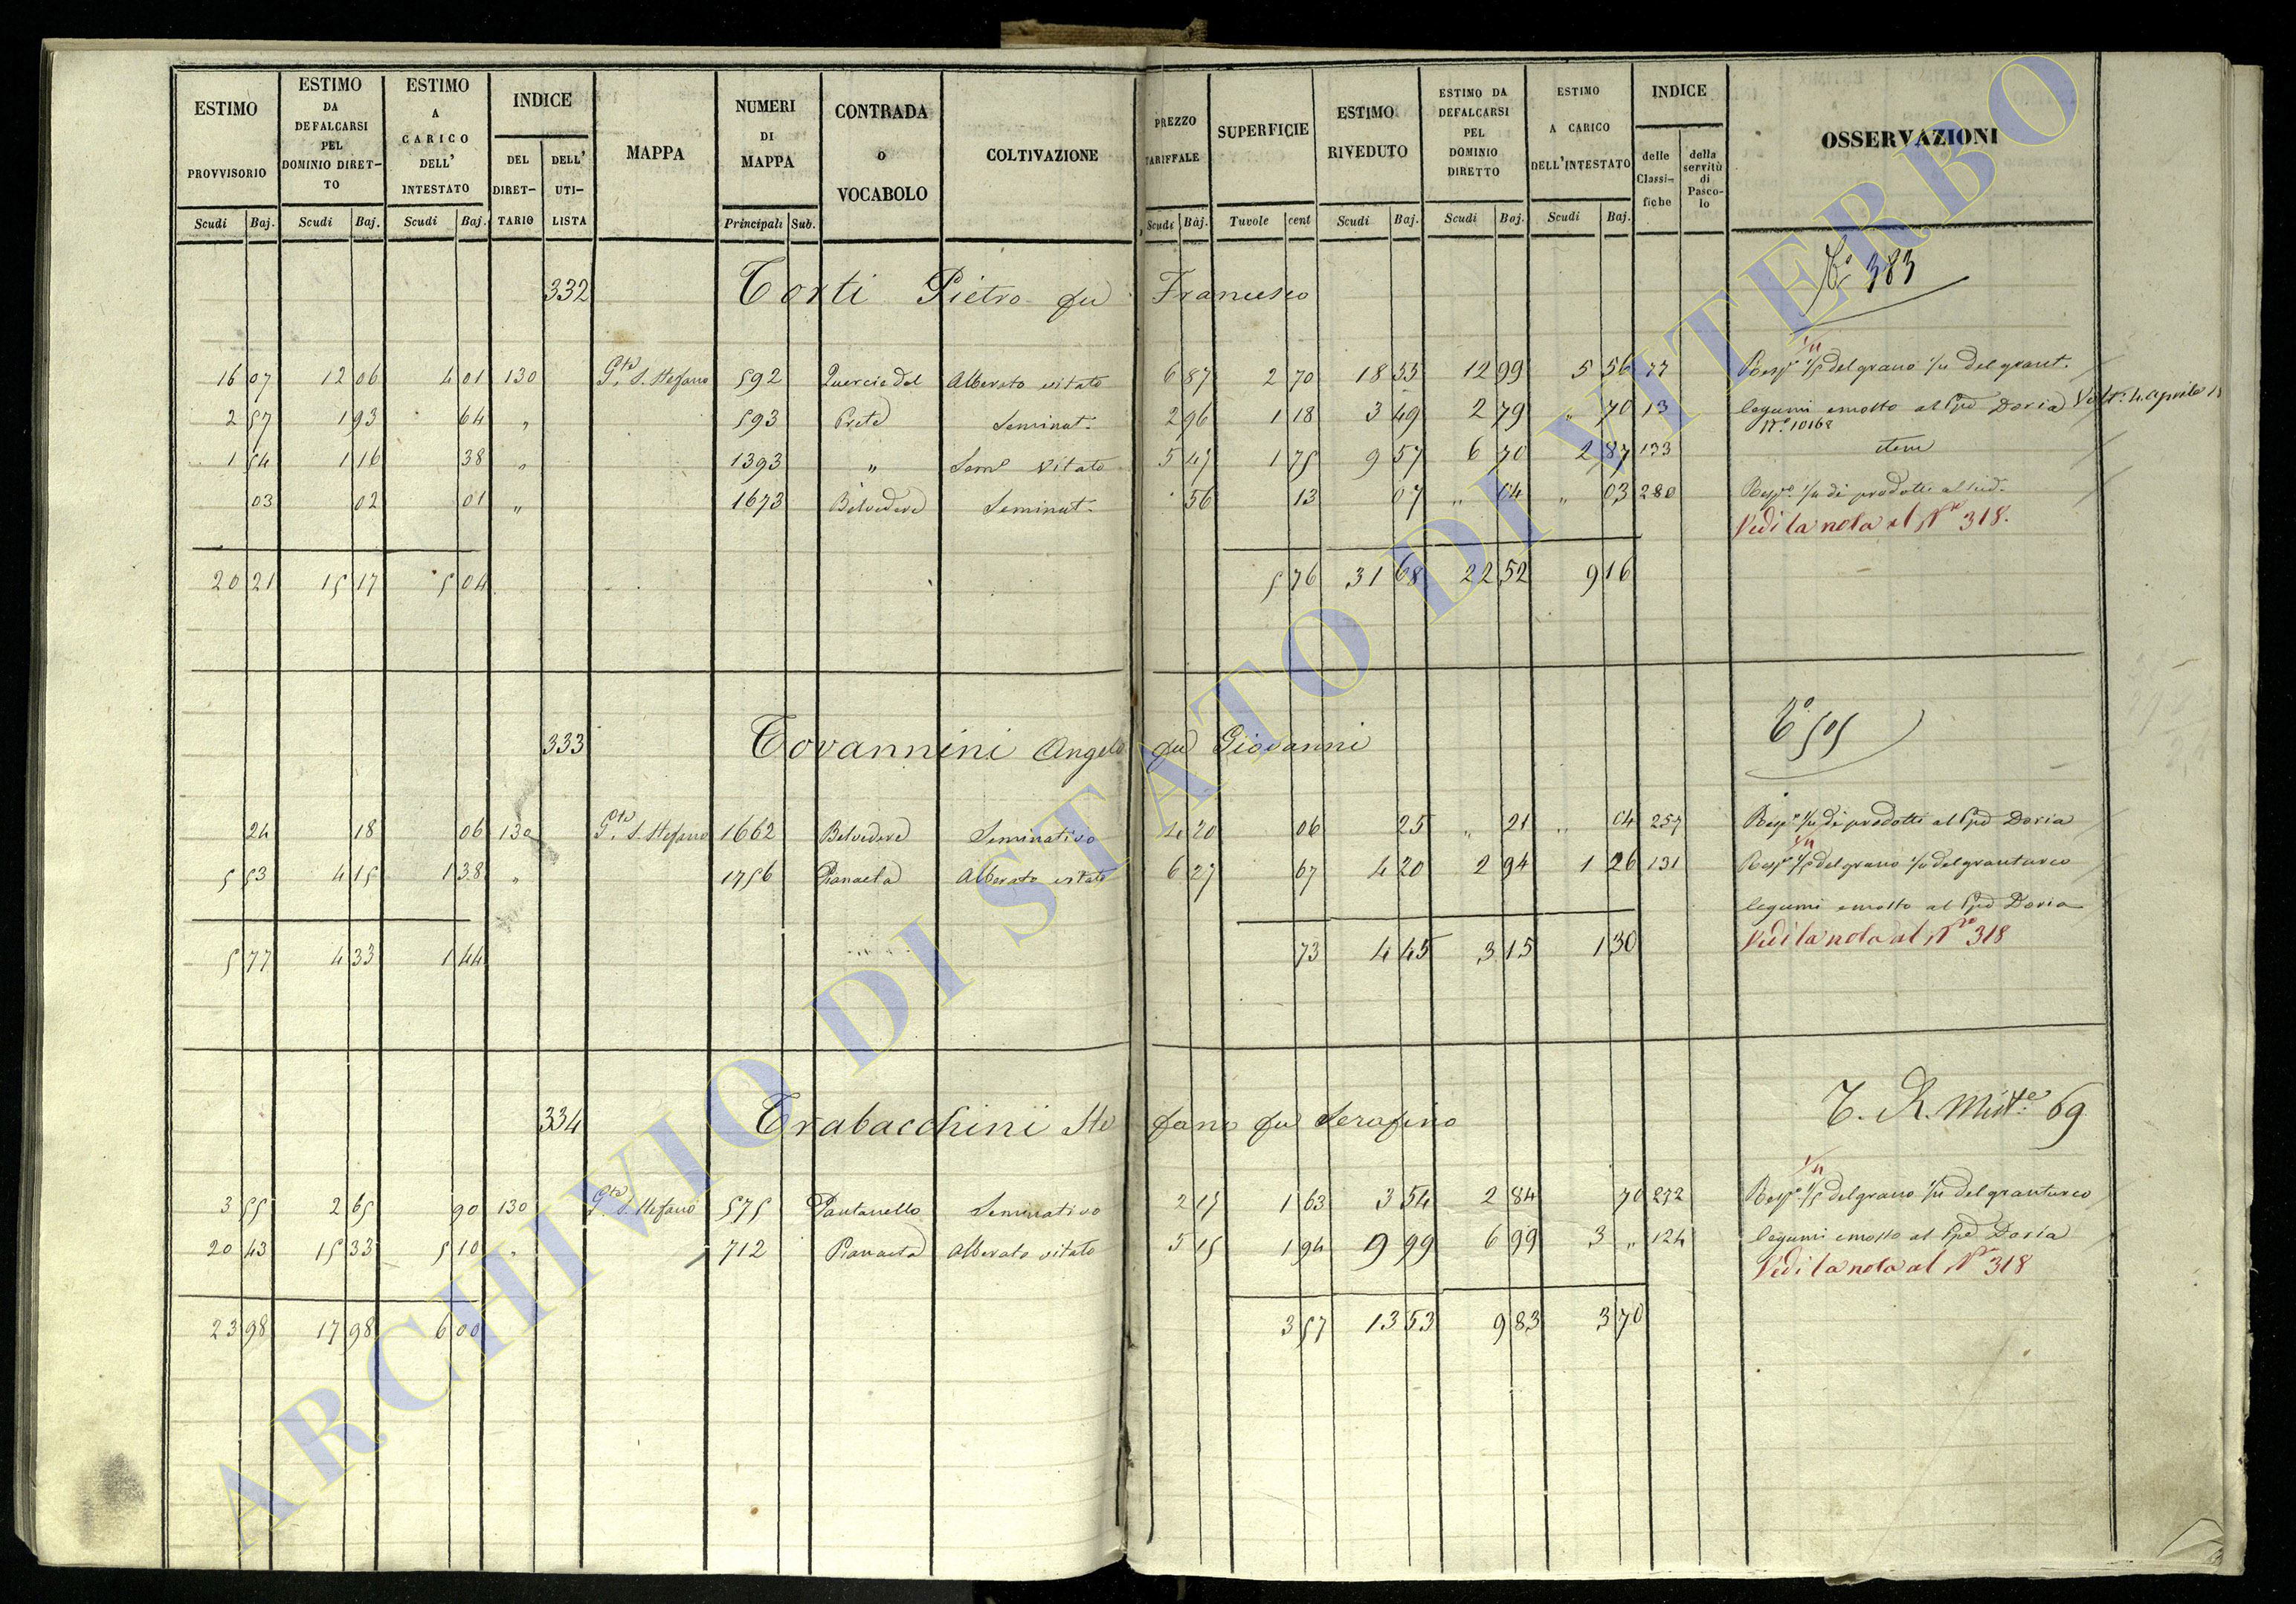 ESTIMO PROVVISORIO | ESTIMO DA DEFALCARSI PEL DOMINIO DIRETTO | ESTIMO A CARICO DELL' INTESTATO | INDICE DEL DIRETTARIO | DELL' UTILISTA | MAPPA | NUMERI DI MAPPA | CONTRADA O VOCABOLO | COLTIVAZIONE | PREZZO TARIFFALE | SUPERFICIE | ESTIMO RIVEDUTO | ESTIMO DA DEFALCARSI PEL DOMINIO DIRETTO | ESTIMO A CARICO DELL'INTESTATO | INDICE delle Classifiche | della servitù di Pascolo | OSSERVAZIONI
Scudi Baj. | Scudi Baj. | Scudi Baj. | Principali Sub. | Scudi Baj. | Tavole cent | Scudi Baj. | Scudi Baj. | Scudi Baj.
332 Torti Pietro fu Francesco 383
16 07 | 12 06 | 4 01 | 130 | S. Stefano | 592 | Quercia del | Alberato vitato | 6 87 | 2 70 | 18 55 | 12 99 | 5 56 | 77 | Resp. 1/5 del grano 1/4 del grant.
2 57 | 1 93 | 64 | " | 593 | Prete | Seminat. | 2 96 | 1 18 | 3 49 | 2 79 | " 70 | 13 | legumi e mosto al Ppe Doria
N.° 10168
1 54 | 1 16 | 38 | " | 1393 | " | Sem.° vitato | 5 47 | 1 75 | 9 57 | 6 70 | 2 87 | 133 | item
03 | 02 | 01 | " | 1673 | Belvedere | Seminat. | 56 | 13 | 07 | " 04 | " 03 | 280 | Resp. 1/4 di prodotti al sud.
Vedi la nota al N° 318.
20 21 | 15 17 | 5 04 | 5 76 | 31 68 | 22 52 | 9 16
333 Tovannini Angelo fu Giovanni 505
24 | 18 | 06 | 130 | S. Stefano | 1662 | Belvedere | Seminativo | 4 20 | 06 | 25 | " 21 | " 04 | 257 | Resp. 1/4 di prodotti al Ppe Doria
5 53 | 4 15 | 1 38 | " | 1756 | Pianaeta | Alberato vitato | 6 27 | 67 | 4 20 | 2 94 | 1 26 | 131 | Resp. 1/5 del grano 1/4 del granturco
legumi e mosto al Ppe Doria
Vedi la nota al N° 318
5 77 | 4 33 | 1 44 | 73 | 4 45 | 3 15 | 1 30
334 Trabacchini Stefano fu Serafino T. R. Miste 69
3 55 | 2 65 | 90 | 130 | S. Stefano | 575 | Pantanello | Seminativo | 2 17 | 1 63 | 3 54 | 2 84 | 70 | 272 | Resp. 1/5 del grano 1/4 del granturco
20 43 | 15 33 | 5 10 | " | 712 | Pianaeta | Alberato vitato | 5 15 | 1 94 | 9 99 | 6 99 | 3 " | 124 | legumi e mosto al Ppe Doria
Vedi la nota al N° 318
23 98 | 17 98 | 6 00 | 3 57 | 13 53 | 9 83 | 3 70
ARCHIVIO DI STATO DI VITERBO